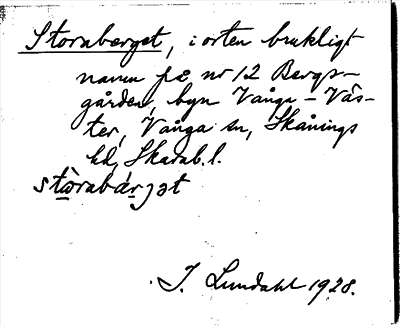 Stornberget, i orten brukligt
namn på nr 12 Bergs-
gården, byn Vånga - Väs-
ter, Vånga sn, Skånings
hd, Skarab. l.
stòrabárjət
J. Lundahl 1928.